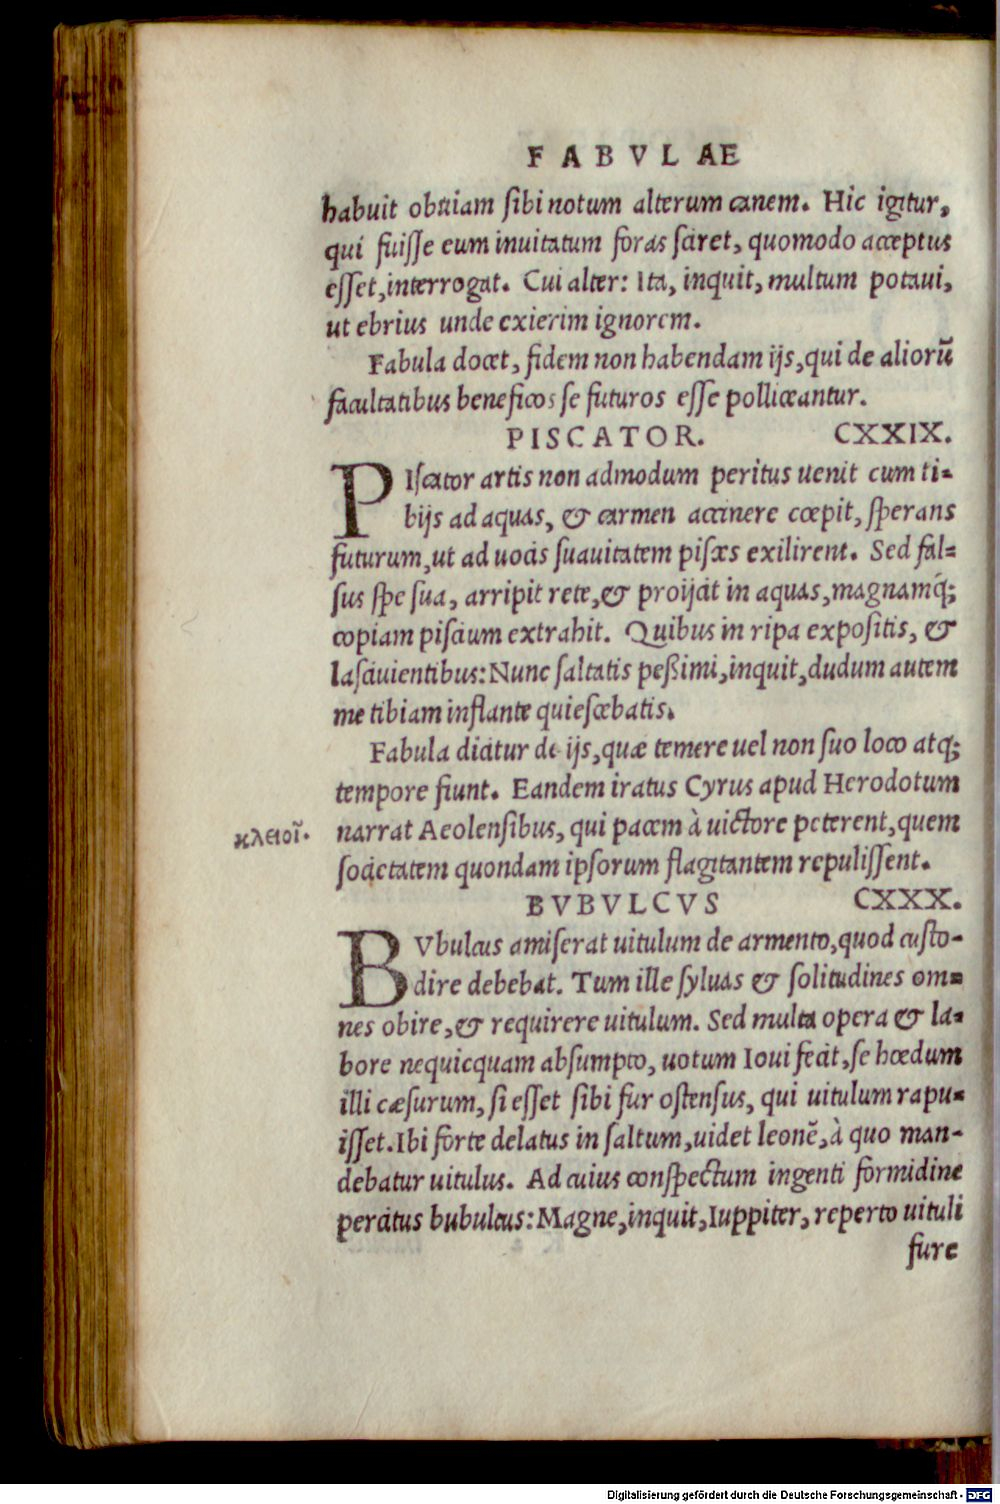 FABVLAE
habuit obuiam sibi notum alterum canem. Hic igitur,
qui fuisse eum inuitatum foras sciret, quomodo acceptus
esset, interrogat. Cui alter: Ita, inquit, multum potaui,
ut ebrius unde exierim ignorem.
Fabula docet, fidem non habendam ijs, qui de aliorũ
facultatibus beneficos se futuros esse polliceantur.
PISCATOR. CXXIX.
PIscator artis non admodum peritus uenit cum ti-
bijs ad aquas, & carmen accinere cœpit, sperans
futurum, ut ad uocis suauitatem pisces exilirent. Sed fal-
sus spe sua, arripit rete, & proijcit in aquas, magnamq́;
copiam piscium extrahit. Quibus in ripa expositis, &
lasciuientibus: Nunc saltatis peßimi, inquit, dudum autem
me tibiam inflante quiescebatis.
Fabula dicitur de ijs, quæ temere uel non suo loco atq;
tempore fiunt. Eandem iratus Cyrus apud Herodotum
κλειοῖ. narrat Aeolensibus, qui pacem à uictore peterent, quem
societatem quondam ipsorum flagitantem repulissent.
BVBVLCVS CXXX.
BVbulcus amiserat uitulum de armento, quod custo-
dire debebat. Tum ille syluas & solitudines om-
nes obire, & requirere uitulum. Sed multa opera & la-
bore nequicquam absumpto, uotum Ioui fecit, se hœdum
illi cæsurum, si esset sibi fur ostensus, qui uitulum rapu-
isset. Ibi forte delatus in saltum, uidet leonẽ, à quo man-
debatur uitulus. Ad cuius conspectum ingenti formidine
percitus bubulcus: Magne, inquit, Iuppiter, reperto uituli
fure
Digitalisierung gefördert durch die Deutsche Forschungsgemeinschaft - DFG